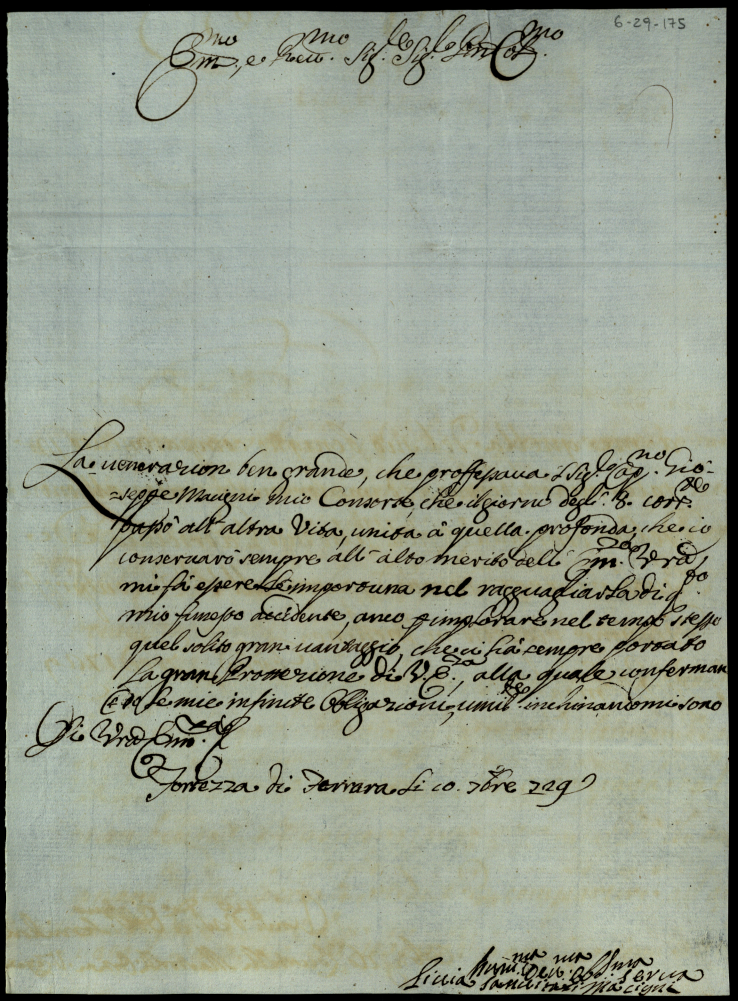 6-29-175
Em.no, e Rev.mo Sig.re Sig.re Pron Col.mo
La venerazion ben grande, che professava il Sig.r Cap.no Gio-
=seppe Macigni mio Consorte, che il giorno degl' 8. corr.te
passò all' altra Vita, unita à quella profonda, che io
conservarò sempre all' alto merito dell' Em.za Vrã,
mi fà essere importuna nel ragguagliarla di q.to
mio funesto accidente, anco p implorare nel tempo stesso
quel solito gran vantaggio, che ci hà sempre portato
la gran Protezione di V. E.za, alla quale conferman
do le mie infinite obligazioni, umil.te inchinandomi sono
Di Vrã Em.za
Fortezza di Ferrara li 10. 7bre 729
Hum.ma Dev.ma Obl.ma Serva
Livia Macigni